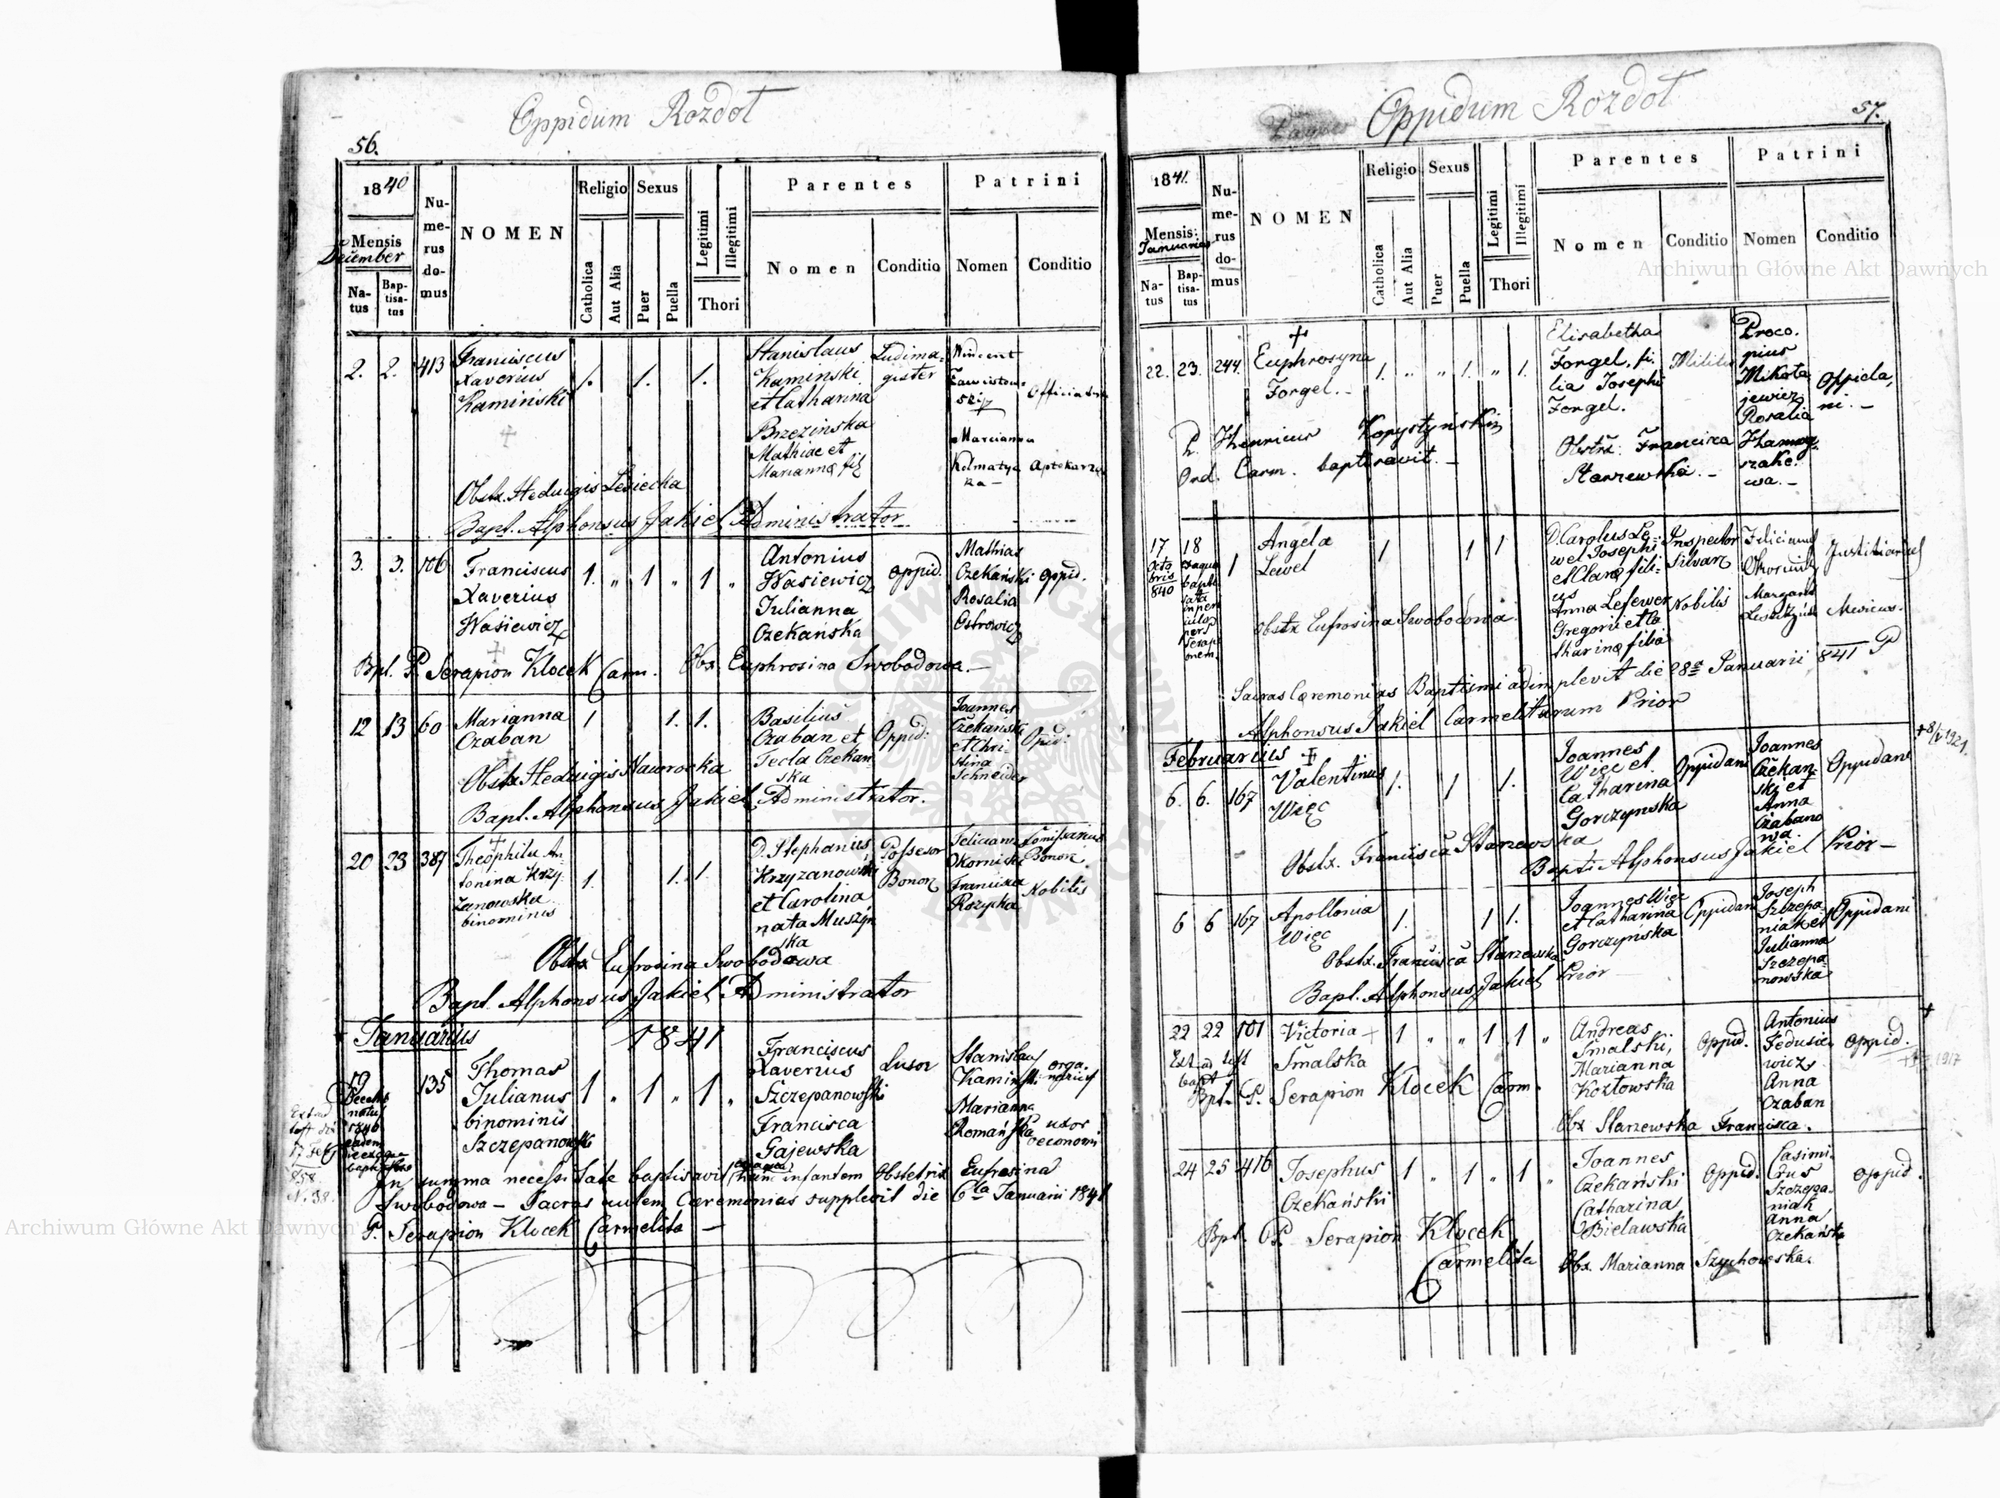 Oppidum Rozdoł
56.
1840
Mensis
December
Na-
tus
Bap-
tisa-
tus
Nu-
me-
rus
do-
mus
NOMEN
Religio
Catholica
Aut Alia
Sexus
Puer
Puella
Legitimi
Illegitimi
Thori
Parentes
Nomen
Conditio
Patrini
Nomen
Conditio
2. 2. 413
Franciscus
Xaverius
Kaminski
1. 1. 1.
Stanislaus
Kaminski
et Catharina
Brzezinska
Mathiae et
Mariannæ
Ludima-
gister
Vincent
Marcianna
Aptekarz
Obstx. Heduigis Lesiecka
Bapt. Alphonsus Jakiel Administrator
3. 3. 106
Franciscus
Xaverius
Wasiewicz
1. „ 1 „ 1 „
Antonius
Wasiewicz
Julianna
Czekańska
oppid.
Mathias
Czekański
Rosalia
Ostrowicz
oppid.
Bpt. P. Serapion Klocek Carm. Obx. Euphrosina Swobodowa.—
12 13 60
Marianna
Czaban
1 1. 1.
Basilius
Czaban et
Tecla Czekan
ska
Oppid:
Joannes
Czekański
et Chri-
stina
Schneider
Opid:
Obstx Heduigis Nawrocka
Bapt. Alphonsus Jakiel Administrator.
20 23 387
Theophila An
tonina Krzy-
żanowska
binominis
1. 1. 1.
D. Stephanus
Krzyzanowski
et Carolina
nata Muszyn
ska
Possesor
Bonor
Felicianus
Okornicki
Francisca
Rozycka
Bonor
Nobilis
Obstx Eufrosina Swobodowa
Bapt. Alphonsus Jakiel Administrator
Januarius 1841
19
Decebr
natus
1840
eadem
dieque
135
Thomas
Julianus
binominis
Szczepanowski
1 „ 1 „ 1 „
Franciscus
Xaverius
Szczepanowski
Francisca
Gajewska
Lusor
Stanislaus
Kamiński
Marianna
Romańska
orga-
narius
uxor
oeconomi
17 Feb
858.
N. 38.
In summa necessitate baptisavit hanc infantem Obstetrix Eufrosina
Swobodowa — Sacras autem Cæremonias supplevit die 6ta Januarii 1841
P. Serapion Klocek Carmelita —
Oppidum Rozdoł
57.
1841.
Mensis:
Januarius
Na-
tus
Bap-
tisa-
tus
Nu-
me-
rus
do-
mus
NOMEN
Religio
Catholica
Aut Alia
Sexus
Puer
Puella
Legitimi
Illegitimi
Thori
Parentes
Nomen
Conditio
Patrini
Nomen
Conditio
22. 23. 244.
Euphrosyna
Forgel.—
1. „ „ 1. „ 1.
Elisabetha
Forgel, fi-
lia Josephi
Forgel.
Militis
Proco-
pius
Mikoła
jewicz
Rosalia
Oppida,
ni.—
P. Henricus Kopystyński
Ord. Carm. baptisavit.—
Obstx: Francisca
Starzewska.—
17
Octo
bris
840
18
1
Angela
Lewel
1 1 1
D. Carolus Le-
wel Josephi
et Claræ fili-
us
Anna Lefewer
Gregorii et Ca
tharinæ filia
Inspector
Silvar
Nobilis
Felicianus
Margaret
Justitiarius
Medicus.
Obstx Eufrosina Swobodowa.
Sacras Cæremonias Baptismi adimplevit die 28a Januarii 841 P
Alphonsus Jakiel Carmelitarum Prior
Februarius
6. 6. 167
Valentinus
Więc
1. 1 1.
Joannes
Więc et
Catharina
Gorczynska
Oppidani
Joannes
Czekan-
ski et
Anna
Czabano
wa.
Oppidani
+8/V 1921.
Obstx. Francisca Starzewska
Bapti Alphonsus Jakiel Prior—
6 6 167
Apollonia
Więc
1. 1 1.
Joannes Więc
et Catharina
Gorczyńska
Oppidani
Joseph
Szczepa-
niak et
Julianna
Szczepa-
nowska
Oppidani
Obstx. Francisca Starzewska
Bapt. Alphonsus Jakiel Prior
22 22 101
Victoria
Smalska
1 „ „ 1 1 „
Andreas
Smalski,
Marianna
Kozłowska
oppid.
Antonius
Fedusie-
wicz
Anna
Czaban
oppid.
1917
Bpt. P. Serapion Klocek Carm.
Obx Starzewska Francisca.
24 25 416
Josephus
Czekański
1 „ 1 „ 1 „
Joannes
Czekański
Catharina
Bielawska
oppid.
Casimi-
rus
Szczepa-
niak
Anna
Czekańska
oppid.
Bpt. P. Serapion Klocek
Carmelita
Obx. Marianna Szychowska.
Archiwum Główne Akt Dawnych
Archiwum Główne Akt Dawnych